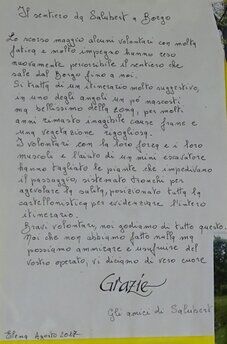 Il sentiero da Salubert a Borgo
Lo scorso maggio alcuni volontari con molta
fatica e molto impegno hanno reso
nuovamente percorribile il sentiero che
sale dal Borgo fino a noi.
Si tratta di un itinerario molto suggestivo,
in uno degli angoli un po' nascosti
ma bellissimo della zona, per molti
anni rimasto inagibile causa frane e
una vegetazione rigogliosa.
I volontari con la loro forza e i loro
muscoli e l'aiuto di un mini escavatore
hanno tagliato le piante che impedivano
il passaggio, sistemato tronchi per
agevolare la salita, posizionato tutta la
cartellonistica per evidenziare l'intero
itinerario.
Bravi volontari, noi godiamo di tutto questo.
Noi che non abbiamo fatto nulla ma
possiamo ammirare e usufruire del
vostro operato, vi diciamo di vero cuore
Grazie
Gli amici di Salubert
Elena Agosto 2017